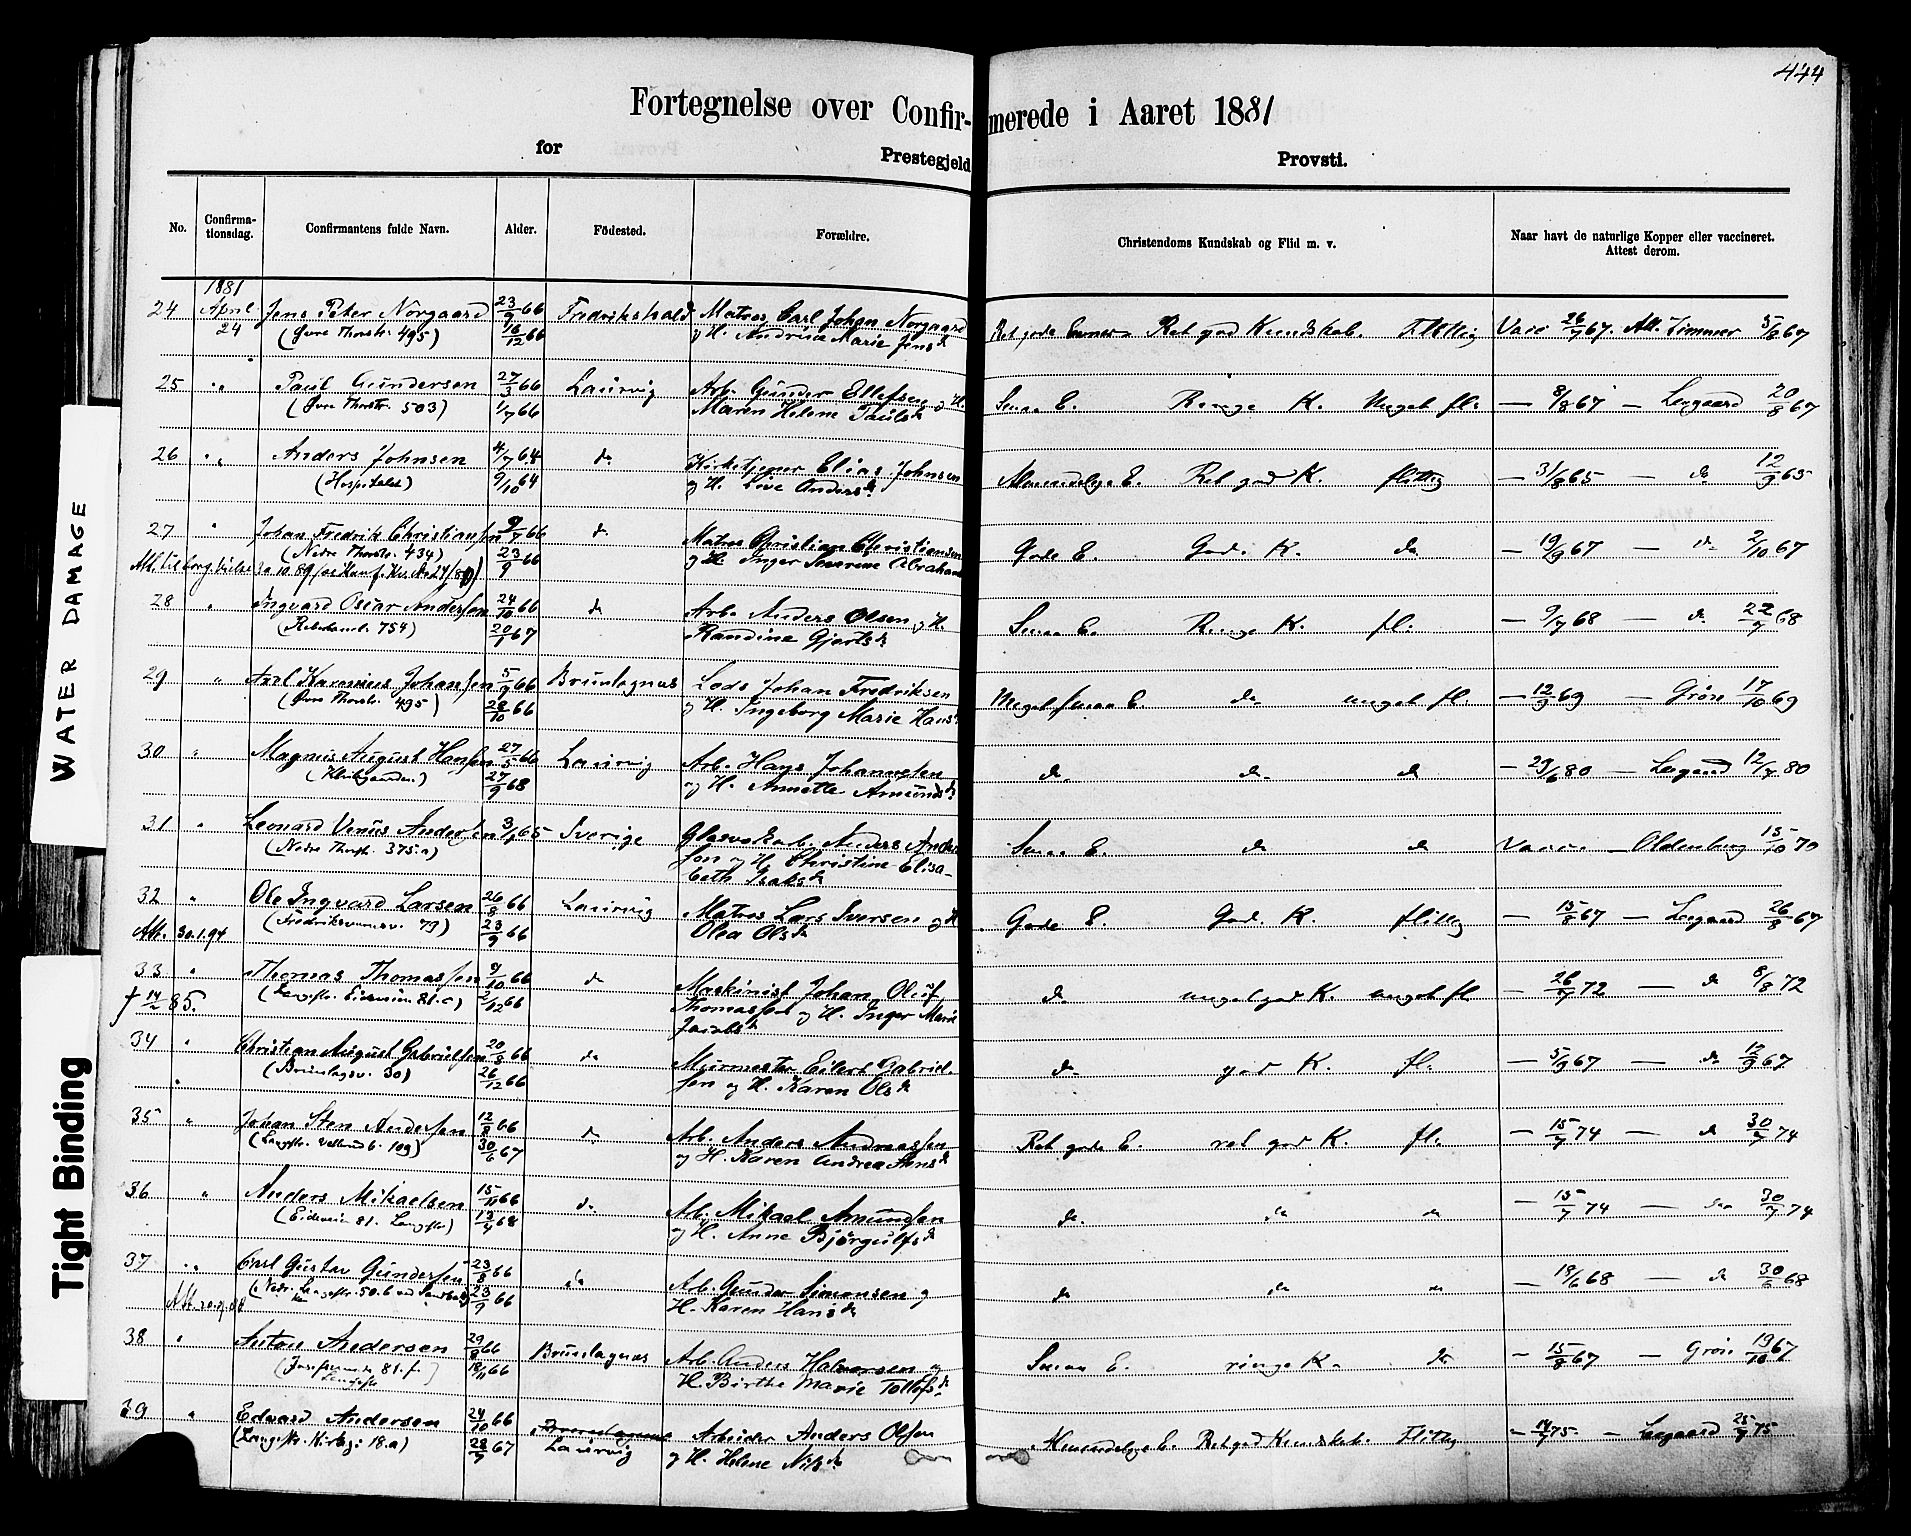 444
Fortegnelse over Confirmerede i Aaret 1881
for Prestegjeld Provsti.
No. Confirmationsdag. Confirmantens fulde Navn. Alder. Födested. Forældre. Christendoms Kundskab og Flid m. v. Naar havt de naturlige Kopper eller vaccineret. Attest derom.
1881
24 April 24 Jens Peter Norgaard 23/9 66 Fredrikshald Matros Carl Johan Norgaard Ret gode Evner Ret god Kundskab. Flittig Vacc 26/7 67. Att. Zimmer 5/8 67
(Øvre Thorstr. 495) 16/12 66 og H. Andrine Marie Jensd.
25 " Paul Gundersen 27/3 66 Laurvig Arb. Gunder Ellefsen og H. Smaa E. Ringe K. Meget fl. — 8/8 67 — Leegaard 20/8 67
(Øvre Thorstr. 503) 1/7 66 Maren Helene Paulsd.
26 " Anders Johnsen 4/7 64 do Kirketjener Elias Johnsen Almindelige E. Ret god K. flittig — 31/8 65 — do 12/9 65
(Hospitalet) 9/10 64 og H. Live Andersd.
27 " Johan Fredrik Christiansen 9/7 66 do Matros Christian Christiansen Gode E. God K. do — 19/9 67 — do 2/10 67
(Nedre Thorstr. 434) 23/9 66 og H. Inger Severine Abrahamsd.
28 " Ingvard Oscar Andersen 24/10 66 do Arb. Anders Olsen og H. Smaa E. Ringe K. fl. — 9/7 68 — do 22/7 68
(Rebekkas 754) 20/1 67 Randine Gjertsd.
29 " Axel Rasmus Johansen 5/9 66 Brunlagnæs Lods Johan Fredriksen Meget smaa E. do meget fl. — 12/9 69 — Grøn 17/10 69
(Øvre Thorstr. 495) 28/10 66 og H. Ingeborg Marie Hansd.
30 " Magnus August Hansen 27/5 66 Laurvig Arb. Hans Johannesen do do do — 29/6 80 — Leegaard 12/7 80
27/9 68 og H. Annette Amundsd.
31 " Leonard Venus Andersen 3/1 65 Sverige Glasverksarb. Anders Andersen og H. Christine Elisabeth Isaksd. Smaa E. do do Vaccin — Oldenborg 15/10 79
(Nedre Thorstr. 375 a)
32 " Ole Ingvard Larsen 26/8 66 Laurvig Matros Lars Iversen og H. Gode E. God K. flittig — 15/8 67 — Leegaard 26/8 67
(Fredriksværnsv. 79) 23/9 66 Olea Olsd.
Att. 30.1.94
33 " Thomas Thomassen 9/10 66 do Maskinist Johan Oluf do meget god K. meget fl — 26/7 72 — do 8/8 72
(Langestr. Eidsveien 81. c) 2/12 66 Thomassen og H. Inger Marie Jacobsd.
† 14/2 85.
34 " Christian August Gabrielsen 20/8 66 do Murmester Eilert Gabrielsen og H. Karen Olsd. do god K. fl. — 5/9 67 — do 12/9 67
(Brunlagsv. 30) 26/12 66
35 " Johan Sten Andersen 12/8 66 do Arb. Anders Andreassen Ret gode E. ret god K. fl. — 15/7 74 — do 30/7 74
30/6 67 og H. Karen Andrea Stensd.
36 " Anders Mikaelsen 15/11 66 do Arb. Mikael Amundsen do. do do — 15/7 74 — do 30/7 74
(Eidsveien 81. Langestr) 13/4 68 og H. Anne Bjørgulfsd.
37 " Carl Gustav Gundersen 23/8 66 do Arb. Gunder Simonsen og do do do — 18/6 68 — do 30/6 68
23/9 66 H. Karen Hansd.
38 " Anton Andersen 29/8 66 Brunlagnæs Arb. Anders Halvorsen og Smaa E. ringe K. do — 15/8 67 — Grøn 19/10 67
18/11 66 H. Birthe Marie Tollefsd.
39 " Edvard Andersen 24/10 66 Laurvig Arbeider Anders Olsen Almindelige E. Ret god Kundskab. Flittig — 14/7 75 — Leegaard 25/7 75
(Langestr. Kirkeg. 18.a) 28/7 67 og H. Helene Nilsd.
WATER DAMAGE
Tight Binding